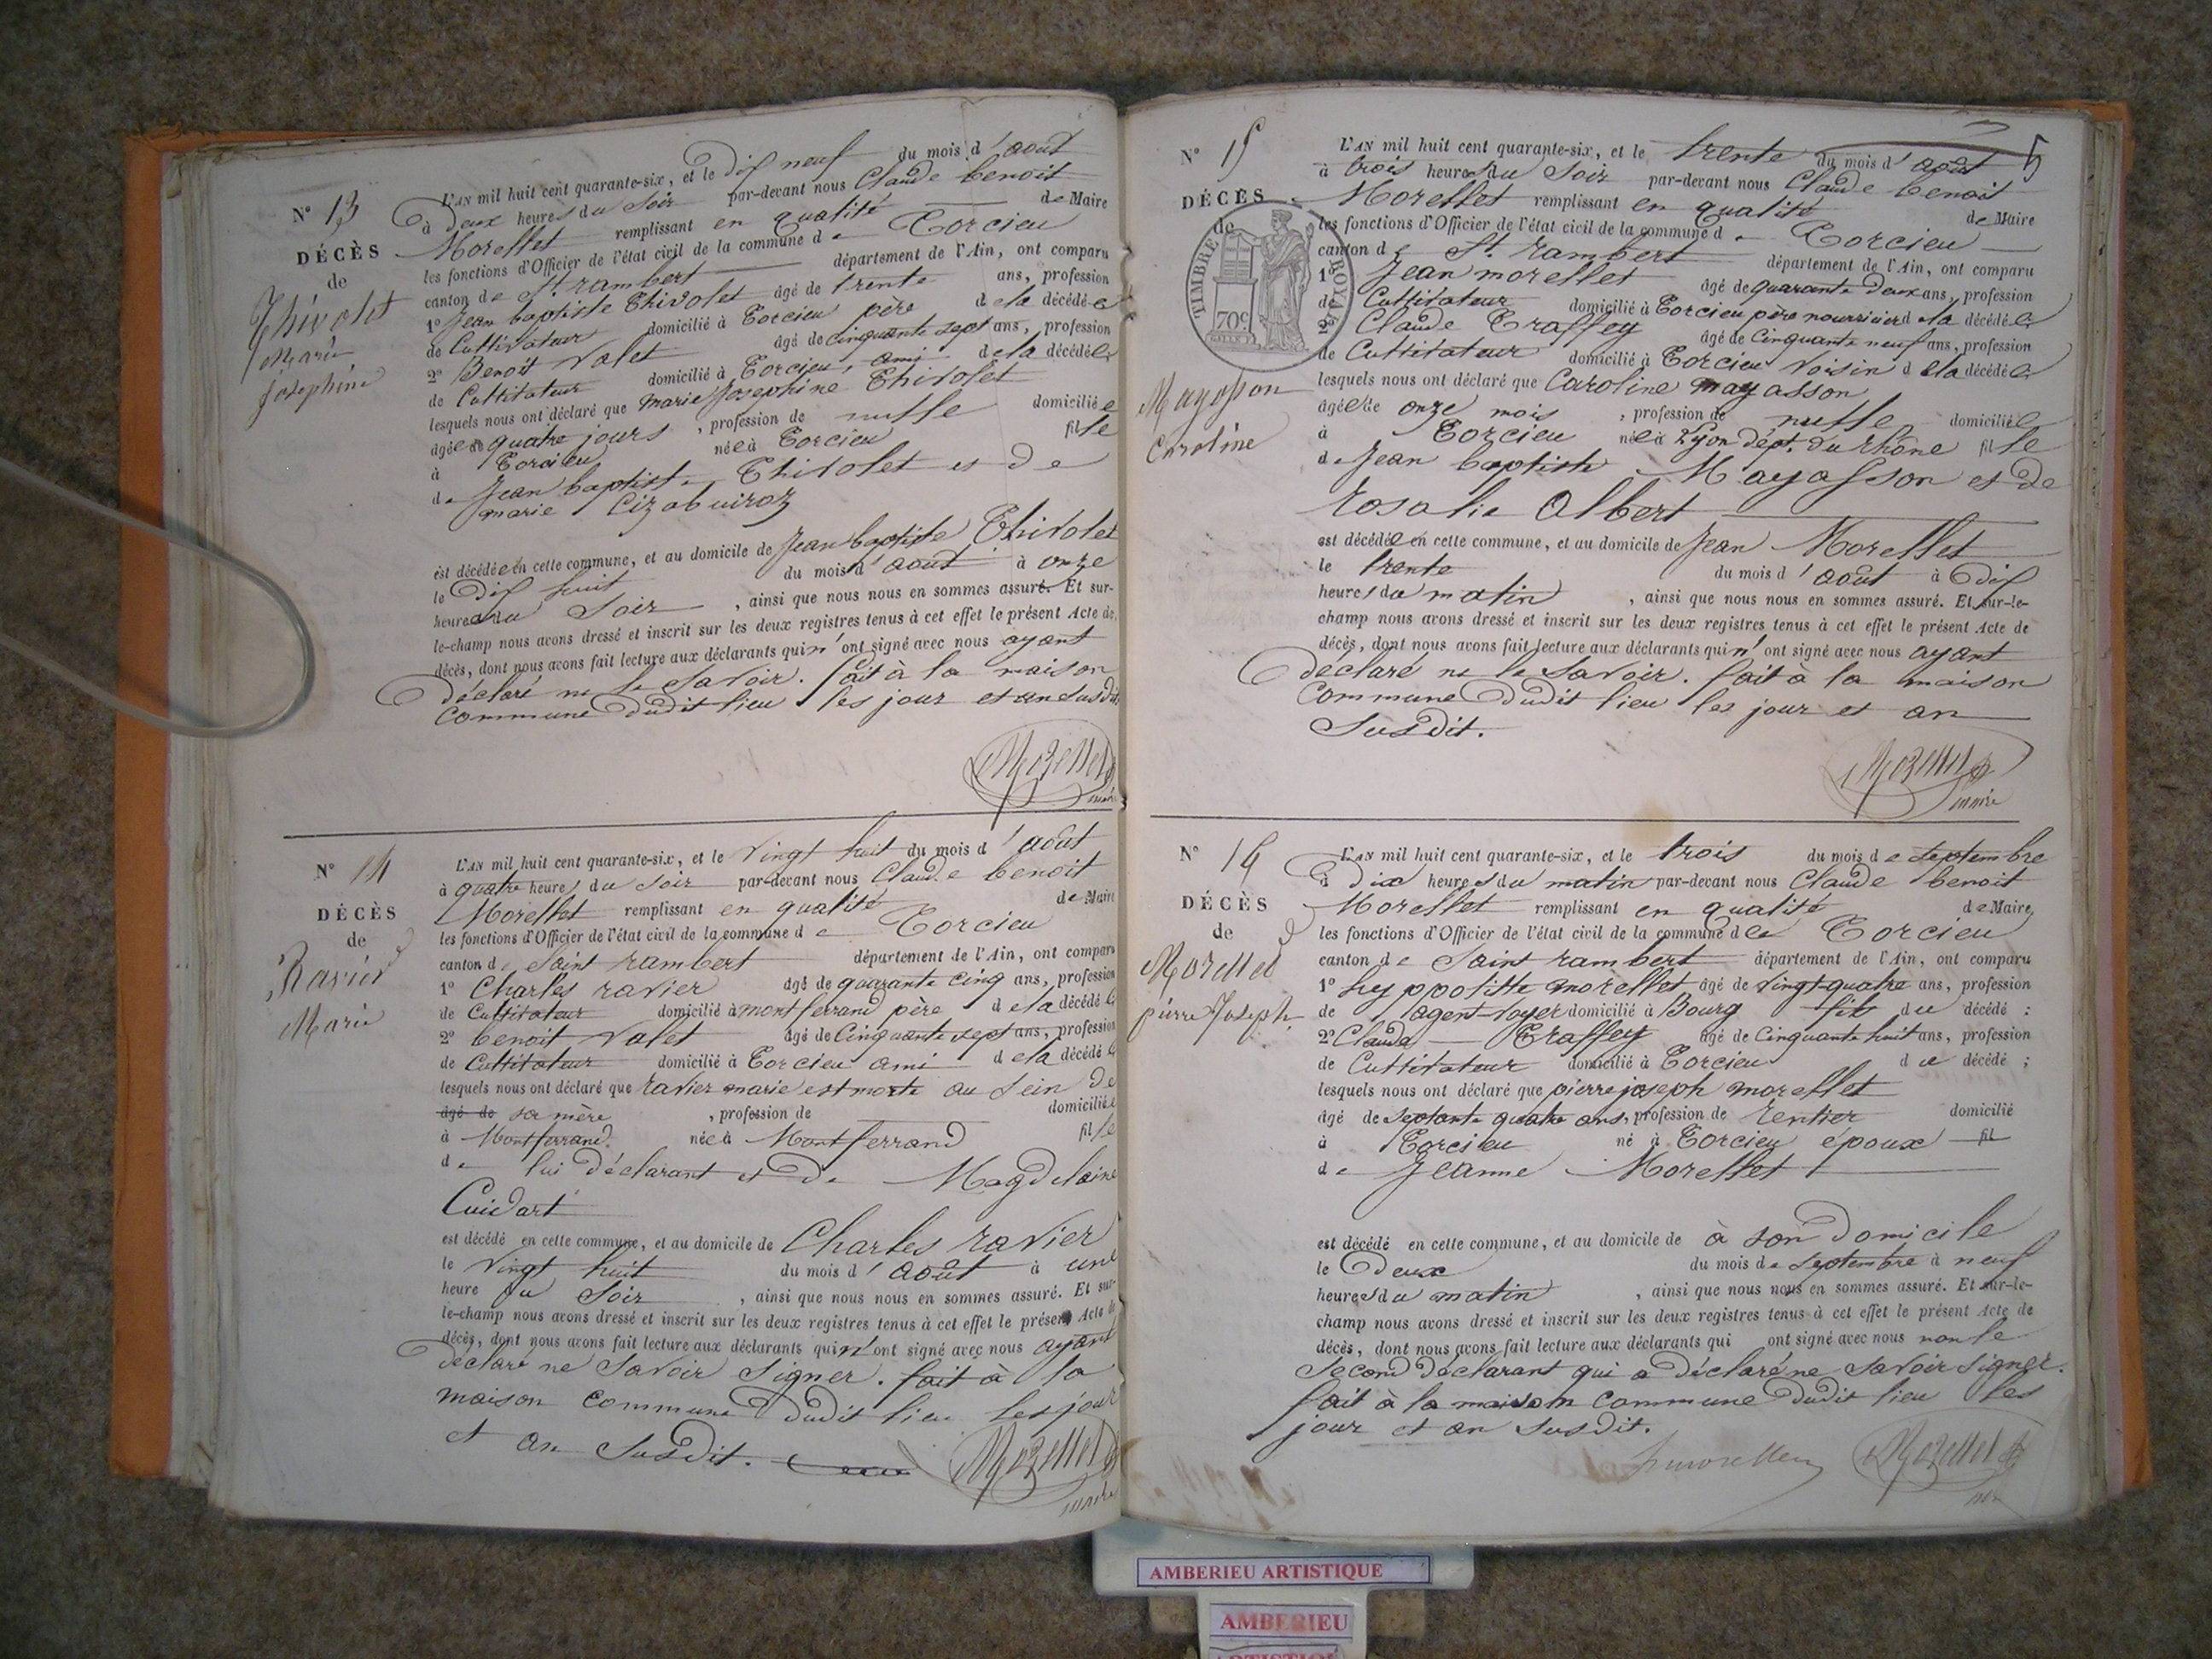 N° 13
DÉCÈS
de
Thivolet
Marie
Josephine
L'AN mil huit cent quarante-six, et le dix neuf du mois d'août
à deux heures du soir par-devant nous Claude benoit
Morellet remplissant en qualité de Maire
les fonctions d'Officier de l'état civil de la commune de Torcieu
canton de St rambert département de l'Ain, ont comparu
1° Jean baptiste Thivolet âgé de trente ans, profession
de Cultivateur domicilié à Torcieu père de la décédée
2° Benoit Valet âgé de cinquante sept ans, profession
de Cultivateur domicilié à Torcieu, ami de la décédée
lesquels nous ont déclaré que marie Josephine Thivolet
âgée de quatre jours, profession de nulle domiciliée
à Torcieu née à Torcieu fille
de Jean baptiste Thivolet et de
marie Cizabuiroz
est décédée en cette commune, et au domicile de Jean baptiste Thivolet
le dix huit du mois d'août à onze
heures du soir, ainsi que nous nous en sommes assuré. Et sur-
le-champ nous avons dressé et inscrit sur les deux registres tenus à cet effet le présent Acte de
décès, dont nous avons fait lecture aux déclarants qui n'ont signé avec nous ayant
déclaré ne le savoir. fait à la maison
commune dudit lieu les jour et an susdit
Morellet
maire
N° 14
DÉCÈS
de
Ravier
Marie
L'AN mil huit cent quarante-six, et le vingt huit du mois d'août
à quatre heures du soir par-devant nous Claude benoit
Morellet remplissant en qualité de Maire
les fonctions d'Officier de l'état civil de la commune de Torcieu
canton de Saint rambert département de l'Ain, ont comparu
1° Charles ravier âgé de quarante cinq ans, profession
de Cultivateur domicilié à montferrand père de la décédée
2° benoit Valet âgé de Cinquante sept ans, profession
de Cultivateur domicilié à Torcieu ami de la décédée
lesquels nous ont déclaré que ravier marie est morte au sein de
âgé de sa mère, profession de domiciliée
à Montferrand née à Montferrand fille
de lui déclarant et de Magdelaine
Cuidart
est décédé en cette commune, et au domicile de Charles ravier
le vingt huit du mois d'août à une
heure du soir, ainsi que nous nous en sommes assuré. Et sur-
le-champ nous avons dressé et inscrit sur les deux registres tenus à cet effet le présent Acte de
décès, dont nous avons fait lecture aux déclarants qui n'ont signé avec nous ayant
déclaré ne savoir signer. fait à la
maison commune dudit lieu les jour
et an susdit.
Morellet
maire
5
N° 15
DÉCÈS
de
TIMBRE ROYAL
70c
Mayosson
Caroline
L'AN mil huit cent quarante-six, et le trente du mois d'août
à trois heures du soir par-devant nous Claude benoit
Morellet remplissant en qualité de Maire
les fonctions d'Officier de l'état civil de la commune de Torcieu
canton de St. rambert département de l'Ain, ont comparu
1° Jean morellet âgé de quarante deux ans, profession
de Cultivateur domicilié à Torcieu père nourricier de la décédée
2° Claude Traffey âgé de Cinquante neuf ans, profession
de Cultivateur domicilié à Torcieu voisin de la décédée
lesquels nous ont déclaré que Caroline mayasson
âgée de onze mois, profession de nulle domiciliée
à Torcieu née à Lyon dépt. du rhône fille
de Jean baptiste Mayasson et de
Rosalie Albert
est décédée en cette commune, et au domicile de Jean Morellet
le trente du mois d'août à dix
heures du matin, ainsi que nous nous en sommes assuré. Et sur-le-
champ nous avons dressé et inscrit sur les deux registres tenus à cet effet le présent Acte de
décès, dont nous avons fait lecture aux déclarants qui n'ont signé avec nous ayant
déclaré ne le savoir. fait à la maison
commune dudit lieu les jour et an
susdit.
Morellet
maire
N° 16
DÉCÈS
de
Morellet
pierre Joseph
L'AN mil huit cent quarante-six, et le trois du mois de septembre
à dix heures du matin par-devant nous Claude benoit
Morellet remplissant en qualité de Maire
les fonctions d'Officier de l'état civil de la commune de Torcieu
canton de Saint rambert département de l'Ain, ont comparu
1° hyppolitte morellet âgé de vingt-quatre ans, profession
de agent voyer domicilié à Bourg fils du décédé :
2° Claude Traffey âgé de Cinquante huit ans, profession
de Cultivateur domicilié à Torcieu du décédé ;
lesquels nous ont déclaré que pierre joseph morellet
âgé de septante quatre ans, profession de rentier domicilié
à Torcieu né à Torcieu époux fil
de Jeanne Morellet
est décédé en cette commune, et au domicile de à son domicile
le deux du mois de septembre à neuf
heures du matin, ainsi que nous nous en sommes assuré. Et sur-le-
champ nous avons dressé et inscrit sur les deux registres tenus à cet effet le présent Acte de
décès, dont nous avons fait lecture aux déclarants qui ont signé avec nous non le
second déclarant qui a déclaré ne savoir signer.
fait à la maison commune dudit lieu les
jour et an susdit.
Morellet
AMBERIEU ARTISTIQUE
AMBERIEU
ARTISTIQUE